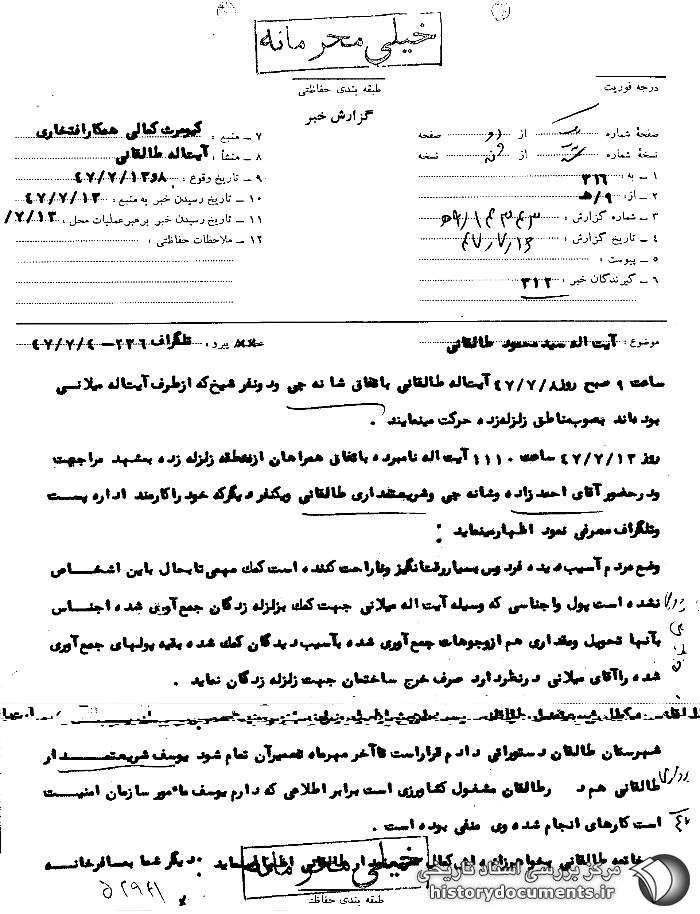 خیلی محرمانه
طبقه بندی حفاظتی
درجه فوریت
گزارش خبر
صفحهٔ شماره از دو صفحه
نسخهٔ شماره از نسخه
۱ – به : ۳۱۶
۲ – از : ۹/ﻫ
۳ – شماره گزارش :
۴ – تاریخ گزارش : ۴۷/۷/۱۶
۵ – پیوست :
۶ – گیرندگان خبر : ۳۱۲
۷ – منبع : کیومرث کمالی همکار افتخاری
۸ – منشأ : آیت‌اله طالقانی
۹ – تاریخ وقوع : ۸و۴۷/۷/۱۳
۱۰ – تاریخ رسیدن خبر به منبع : ۴۷/۷/۱۳
۱۱ – تاریخ رسیدن خبر برهبر عملیات محل : /۷/۱۳
۱۲ – ملاحظات حفاظتی :
موضوع : آیت اله سید محمود طالقانی
پیرو : تلگراف ۲۳۶–۴۷/۷/۴
ساعت ۹ صبح روز ۴۷/۷/۸ آیت‌اله طالقانی باتفاق شانه چی ودونفر شیخ که ازطرف آیت‌اله میلانی
بوده‌اند بصوب مناطق زلزله‌زده حرکت مینمایند .
روز ۴۷/۷/۱۳ ساعت ۱۱۱۰ آیت اله نامبرده باتفاق همراهان ازمنطقه زلزله زده بمشهد مراجعت
ودرحضور آقای احمدزاده وشانه چی وشریعتمداری طالقانی ویکنفر دیگر که خود را کارمند اداره پست
وتلگراف معرفی نمود اظهار مینماید :
وضع مردم آسیب دیده فردوس بسیار رقت‌انگیز وناراحت کننده است کمک مهمی تابحال باین اشخاص
نشده است پول واجناسی که وسیله آیت اله میلانی جهت کمک بزلزله زدگان جمع‌آوری شده اجناس
بآنها تحویل ومقداری هم ازوجوهات جمع آوری شده بآسیب دیدگان کمک شده بقیه پولهای جمع‌آوری
شده راآقای میلانی درنظردارد صرف خرج ساختمان جهت زلزله زدگان نماید .
شهرستان طالقان دستوراتی دادم قراراست تاآخر مهرماه تعمیرآن تمام شود یوسف شریعتمدار
طالقانی هم در طالقان مشغول کشاورزی است برابر اطلاعی که دارم یوسف مأمور سازمان امنیت
است کارهای انجام شده وی منفی بوده است .
دیگر شما بمسافرخانه
خیلی محرمانه
طبقه بندی حفاظتی
۵۲۹۴۱
مرکز بررسی اسناد تاریخی
historydocuments.ir